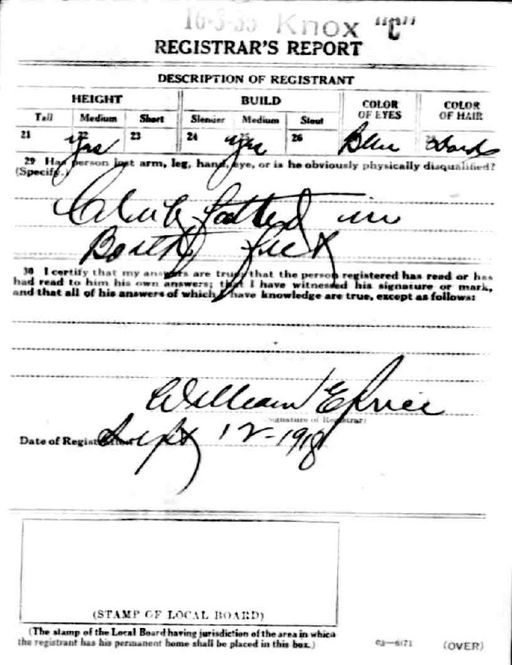 16-3-35 Knox "C"
REGISTRAR'S REPORT
DESCRIPTION OF REGISTRANT
HEIGHT BUILD COLOR OF EYES COLOR OF HAIR
Tall Medium Short Slender Medium Stout
21 22 yes 23 24 25 yes 26 27 Blue 28
29 Has person lost arm, leg, hand, eye, or is he obviously physically disqualified?
(Specify.)
Club footed in
Both feet
30 I certify that my answers are true; that the person registered has read or has
had read to him his own answers; that I have witnessed his signature or mark,
and that all of his answers of which I have knowledge are true, except as follows:
William E
(Signature of Registrar)
Date of Registration Sept 12-1918
(STAMP OF LOCAL BOARD)
(The stamp of the Local Board having jurisdiction of the area in which
the registrant has his permanent home shall be placed in this box.)
03-6171 (OVER)